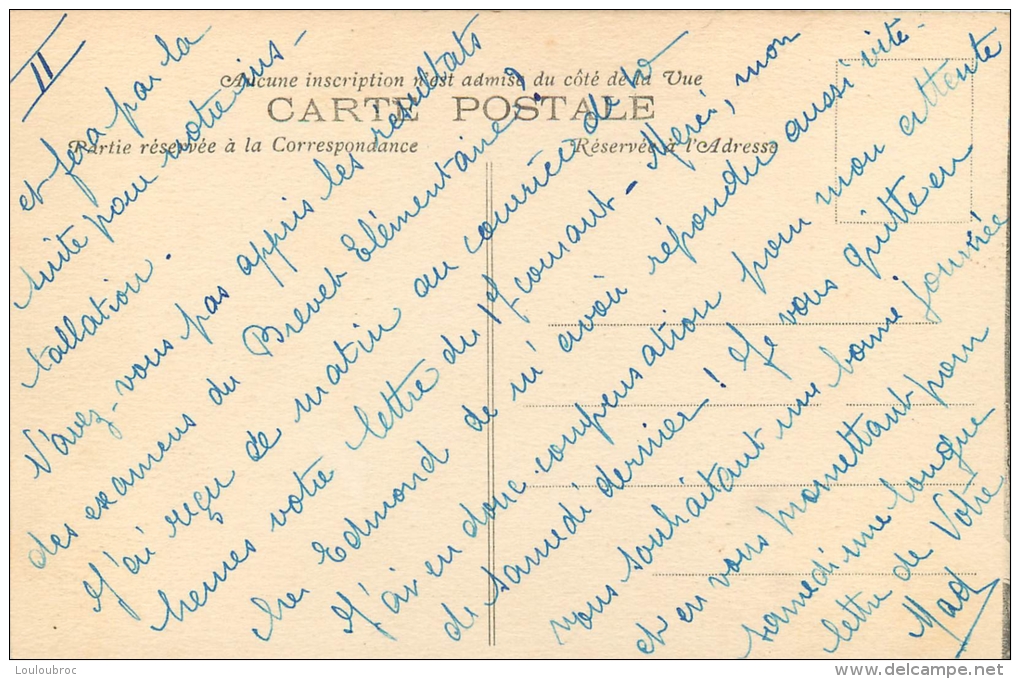 II
Aucune inscription n'est admise du côté de la Vue
CARTE POSTALE
Partie réservée à la Correspondance
Réservée à l'Adresse
et fera par la
suite pour notre ins-
tallation.
N'avez-vous pas appris les resultats
des examens du Brevet Elémentaire?
J'ai reçu ce matin au courrier de 10
heures votre lettre du 17 courant - Merci, mon
Edmond de m'avoir répondu aussi vite.
J'ai eu donc compensation pour mon attente
de samedi dernier! Je vous quitte en
vous souhaitant une bonne journée
et en vous promettant pour
samedi une longue
lettre de Votre
Mad
Louloubroc
delcampe.net